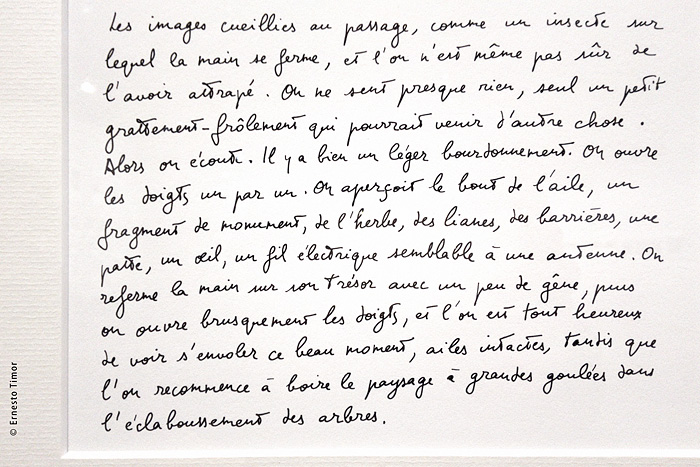 Les images cueillies au passage, comme un insecte sur
lequel la main se ferme, et l'on n'est même pas sûr de
l'avoir attrapé. On ne sent presque rien, seul un petit
grattement-frôlement qui pourrait venir d'autre chose.
Alors on écoute. Il y a bien un léger bourdonnement. On ouvre
les doigts un par un. On aperçoit le bout de l'aile, un
fragment de monument, de l'herbe, des lianes, des barrières, une
patte, un œil, un fil électrique semblable à une antenne. On
referme la main sur son trésor avec un peu de gêne, puis
on ouvre brusquement les doigts, et l'on est tout heureux
de voir s'envoler ce beau moment, ailes intactes, tandis que
l'on recommence à boire le paysage à grandes goulées dans
l'éclaboussement des arbres.
© Ernesto Timor